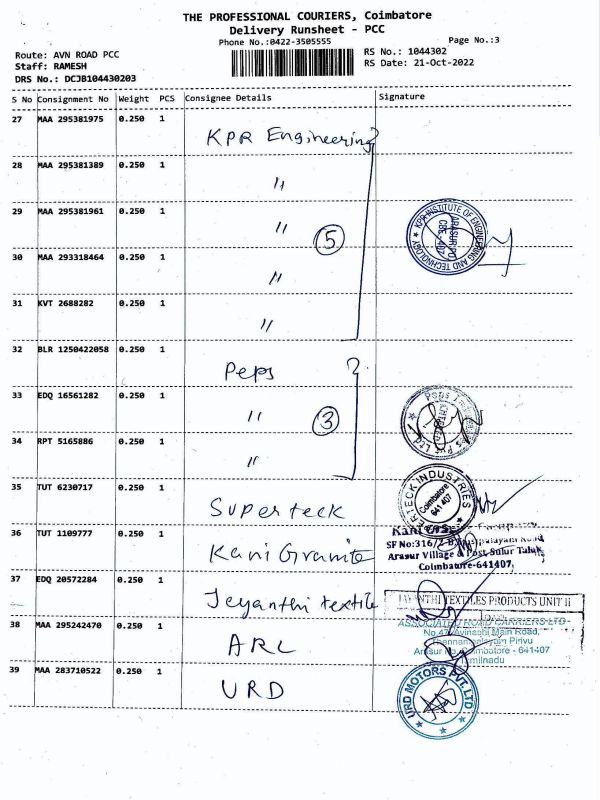 THE PROFESSIONAL COURIERS, Coimbatore
Delivery Runsheet - PCC
Phone No.:0422-3505555
Page No.:3
Route: AVN ROAD PCC
RS No.: 1044302
Staff: RAMESH
RS Date: 21-Oct-2022
DRS No.: DCJB104430203
S No Consignment No Weight PCS Consignee Details Signature
27 MAA 295381975 0.250 1 KPR Engineering
28 MAA 295381389 0.250 1 "
29 MAA 295381961 0.250 1 " 5
KPR INSTITUTE OF ENGINEERING AND TECHNOLOGY
ARASUR PO
CBE-407
30 MAA 293318464 0.250 1 "
31 KVT 2688282 0.250 1 "
32 BLR 1250422058 0.250 1 Peps
33 EDQ 16561282 0.250 1 " 3
Peps
Pvt Ltd
34 RPT 5165886 0.250 1 "
35 TUT 6230717 0.250 1 Superteck
ERTECK INDUSTRIES
Coimbatore
641 407
36 TUT 1109777 0.250 1 Kani Granite
SF No:316/2
Arasur Village & Post Sulur Taluk,
Coimbatore-641407.
37 EDQ 20572284 0.250 1 Jeyanthi textile
JAYANTHI TEXTILES PRODUCTS UNIT II
38 MAA 295242470 0.250 1 ARC
ASSOCIATED ROAD CARRIERS LTD
No 47 Avinashi Main Road,
Pirivu
Coimbatore - 641407
Tamilnadu
39 MAA 283710522 0.250 1 URD
URD MOTORS PVT. LTD